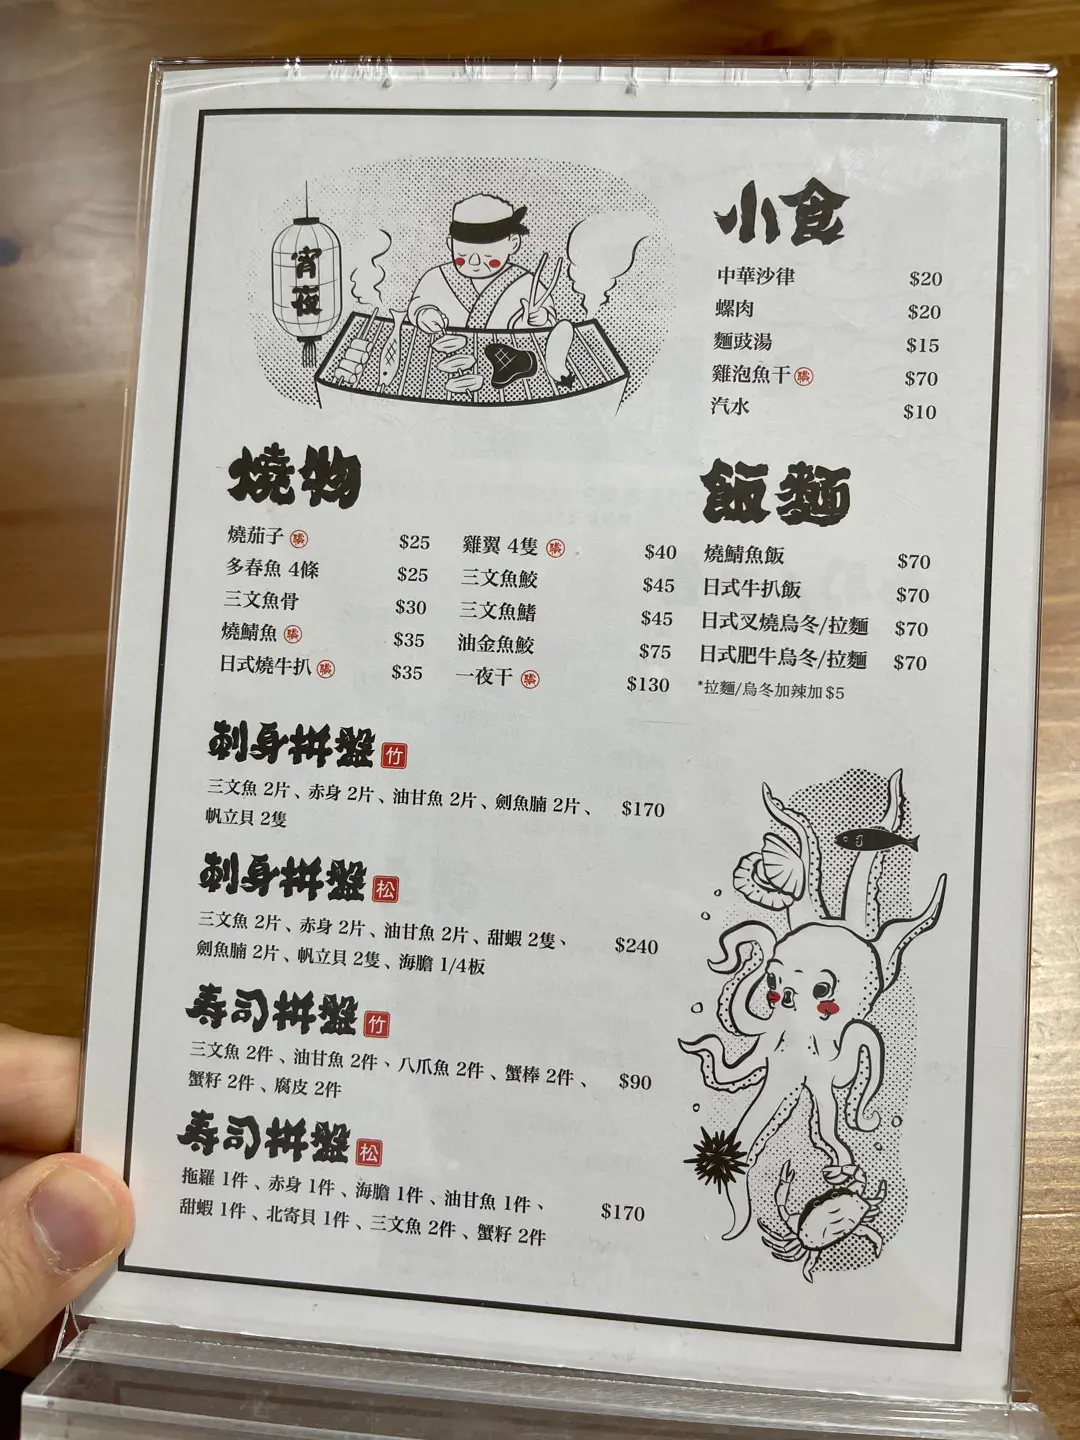 宵夜
小食
中華沙律 $20
螺肉 $20
麵豉湯 $15
雞泡魚干 $70
汽水 $10
燒物
燒茄子 $25
多春魚 4條 $25
三文魚骨 $30
燒鯖魚 $35
日式燒牛扒 $35
雞翼 4隻 $40
三文魚鮫 $45
三文魚鰭 $45
油金魚鮫 $75
一夜干 $130
飯麵
燒鯖魚飯 $70
日式牛扒飯 $70
日式叉燒烏冬/拉麵 $70
日式肥牛烏冬/拉麵 $70
*拉麵/烏冬加辣加$5
刺身拼盤 竹
三文魚 2片、赤身 2片、油甘魚 2片、劍魚腩 2片、 $170
帆立貝 2隻
刺身拼盤 松
三文魚 2片、赤身 2片、油甘魚 2片、甜蝦 2隻、 $240
劍魚腩 2片、帆立貝 2隻、海膽 1/4板
壽司拼盤 竹
三文魚 2件、油甘魚 2件、八爪魚 2件、蟹棒 2件、 $90
蟹籽 2件、腐皮 2件
壽司拼盤 松
拖羅 1件、赤身 1件、海膽 1件、油甘魚 1件、 $170
甜蝦 1件、北寄貝 1件、三文魚 2件、蟹籽 2件